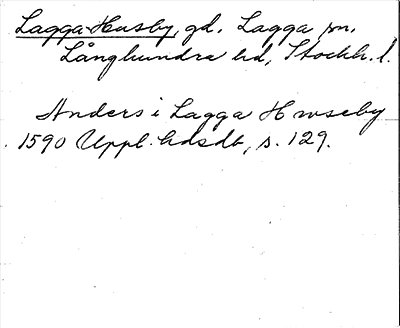 Lagga-Husby, gd. Lagga sn.
Långhundra hd, Stockh. l.
Anders i Lagga Hwseby
1590 Uppl. hdsdb, s. 129.